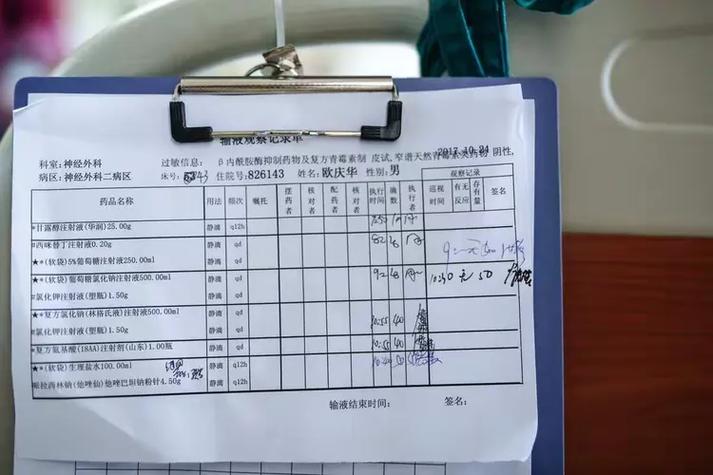 输液观察记录单
2017-10-24
科室:神经外科 过敏信息: β内酰胺酶抑制药物及复方青霉素制 皮试,窄谱天然青霉素类药物 阴性,
病区:神经外科二病区 床号: 43 住院号:826143 姓名:欧庆华 性别:男
药品名称 用法 频次 嘱托 摆药者 核对者 配药者 核对者 执行时间 滴数 执行者 观察记录
巡视时间 有无反应 存有量 签名
*甘露醇注射液(华润)25.00g 静滴 q12h
#西咪替丁注射液0.20g 静滴 qd
★*(软袋)5%葡萄糖注射液250.00ml 静滴 qd
★*(软袋)葡萄糖氯化钠注射液500.00ml 静滴 qd 10:30 无 50
#氯化钾注射液(塑瓶)1.50g 静滴 qd
★*复方氯化钠(林格氏液)注射液500.00ml 静滴 qd 10:55 40
#氯化钾注射液(塑瓶)1.50g 静滴 qd
*复方氨基酸(18AA)注射剂(山东)1.00瓶 静滴 qd
★*(软袋)生理盐水100.00ml 静滴 q12h
哌拉西林钠(他唑仙)他唑巴坦钠粉针4.50g 静滴 q12h
输液结束时间: 签名: